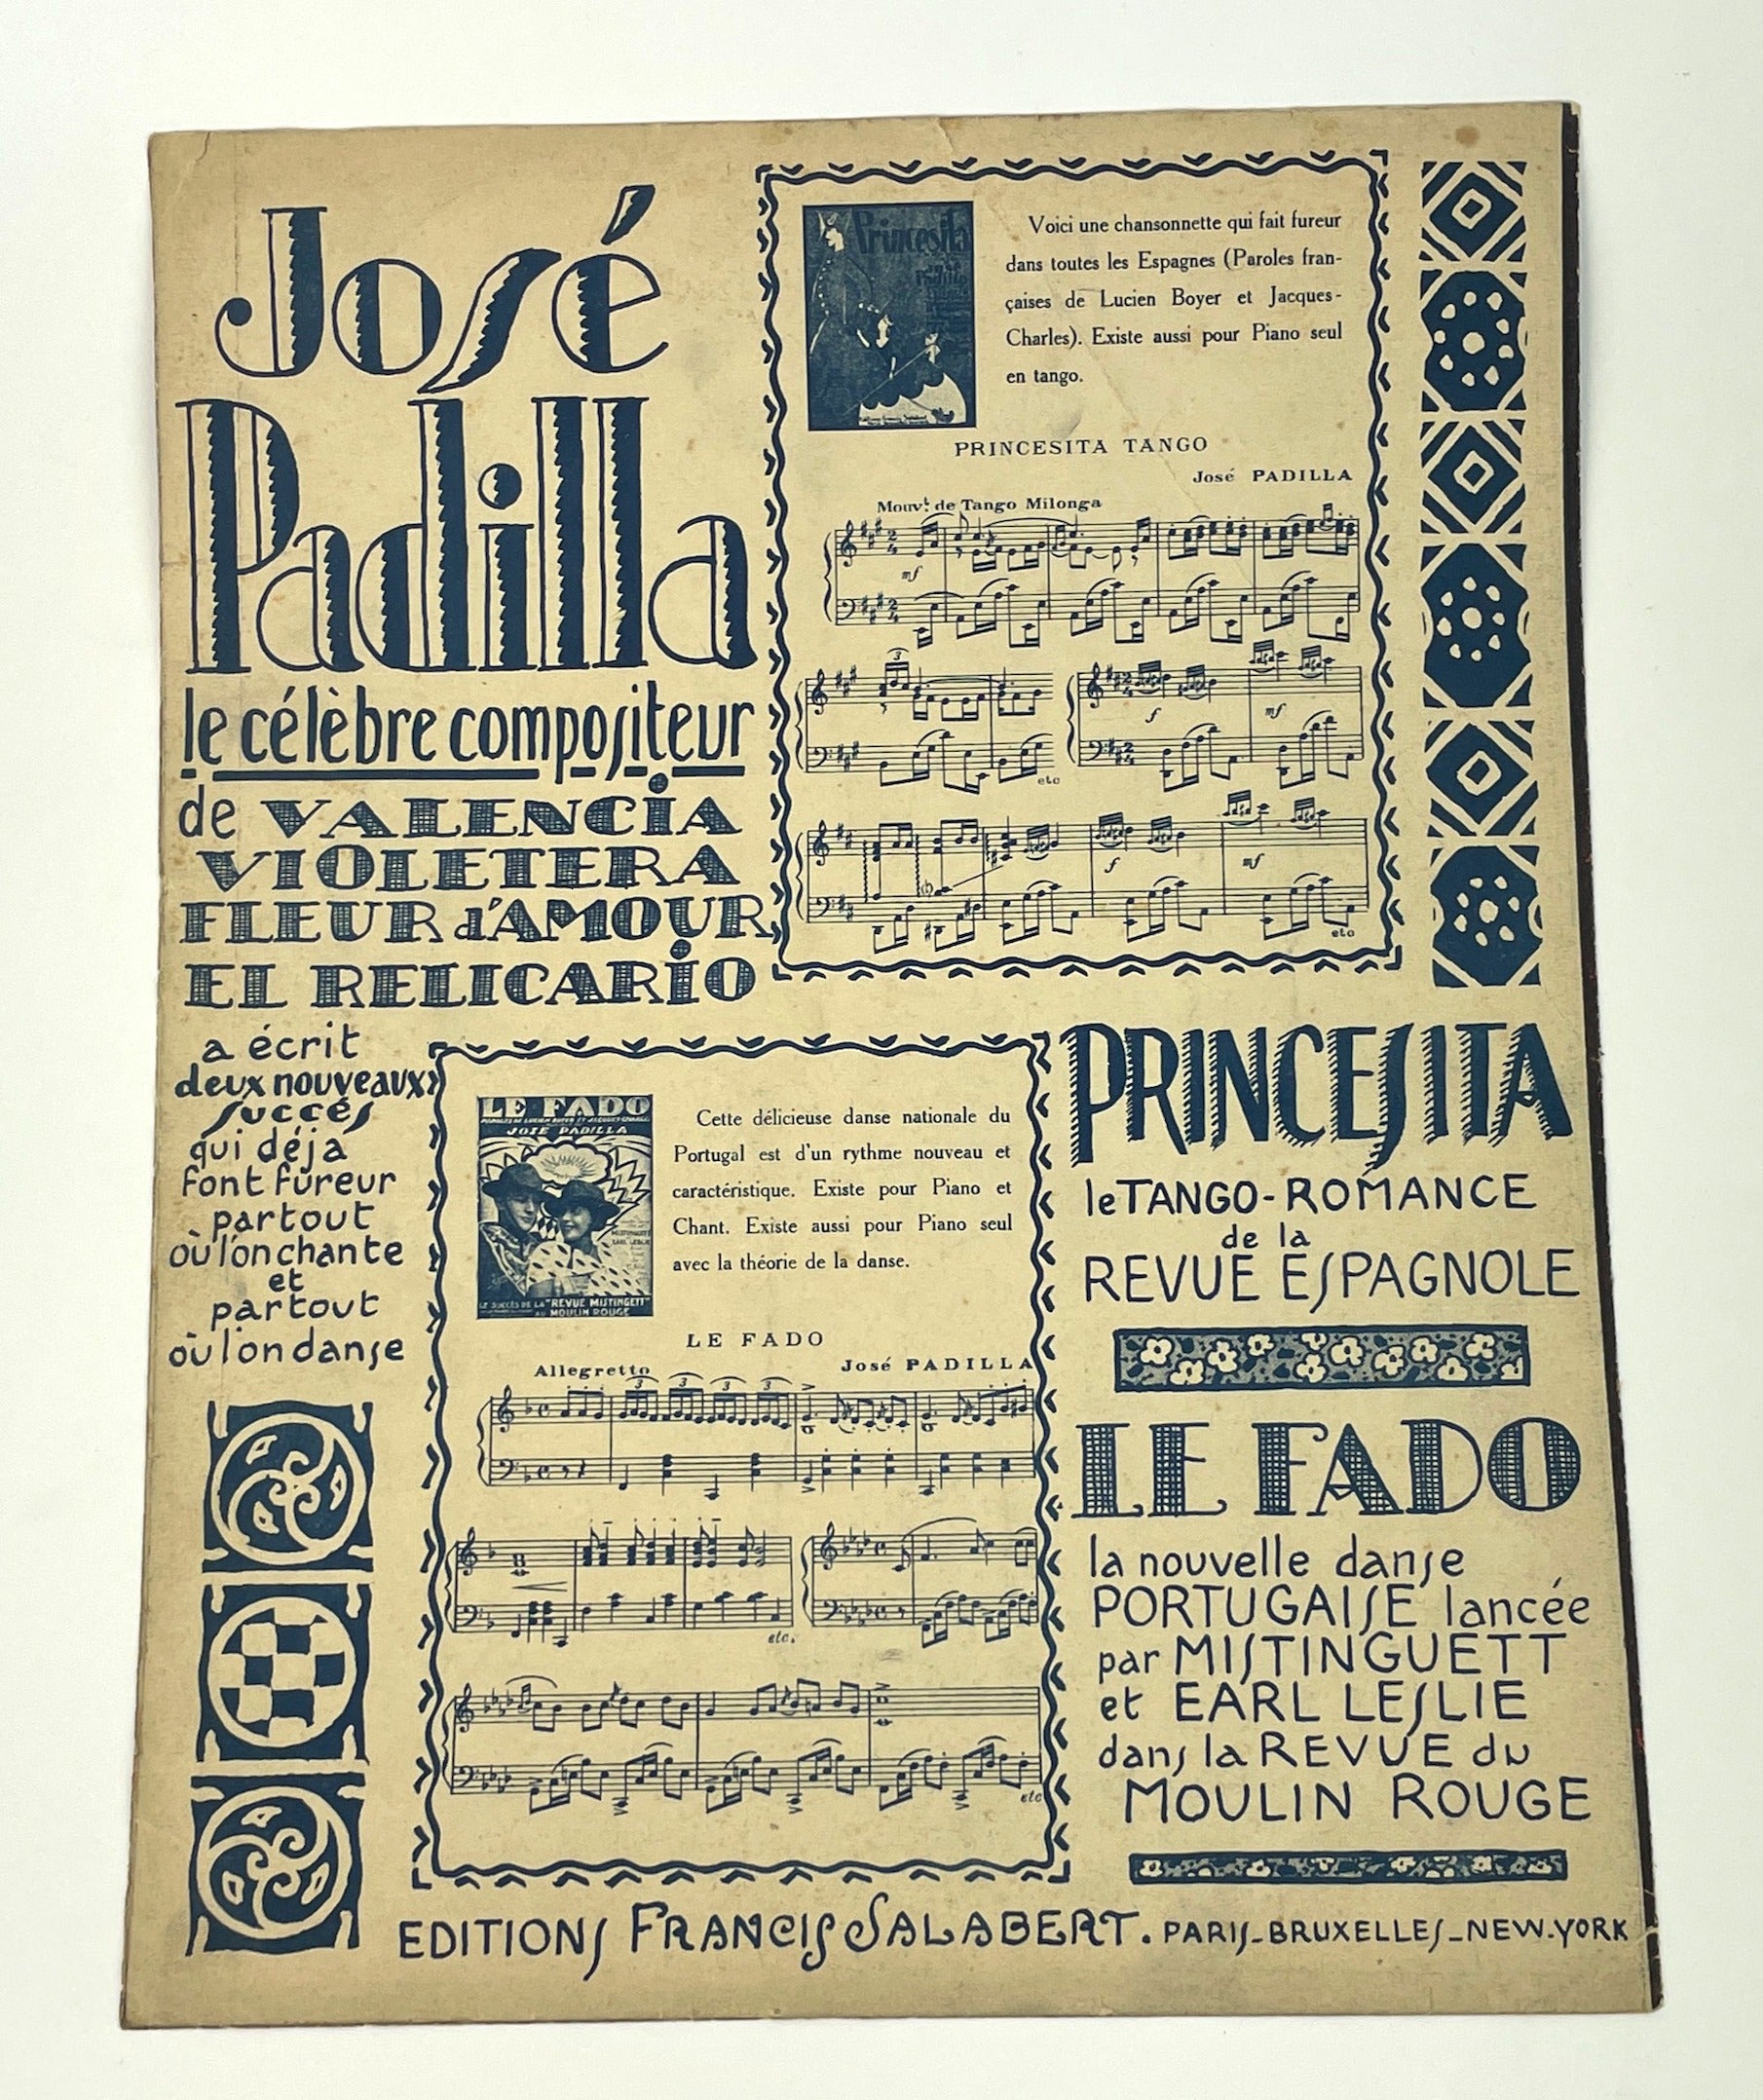 José
Padilla
le célèbre compositeur
de VALENCIA
VIOLETERA
FLEUR d'AMOUR
EL RELICARIO
a écrit
deux nouveaux
succés
qui déjà
font fureur
partout
où l'on chante
et
partout
où l'on danse
Princesita
de
Padilla
Voici une chansonnette qui fait fureur
dans toutes les Espagnes (Paroles fran-
çaises de Lucien Boyer et Jacques-
Charles). Existe aussi pour Piano seul
en tango.
PRINCESITA TANGO
José PADILLA
Mouvt. de Tango Milonga
mf
3
f
mf
etc
f
mf
etc
PRINCESITA
le TANGO-ROMANCE
de la
REVUE ESPAGNOLE
LE FADO
PAROLES DE LUCIEN BOYER ET JACQUES-CHARLES
JOSÉ PADILLA
MISTINGUETT
EARL LESLIE
LE SUCCÈS DE LA "REVUE MISTINGETT"
AU MOULIN ROUGE
Cette délicieuse danse nationale du
Portugal est d'un rythme nouveau et
caractéristique. Existe pour Piano et
Chant. Existe aussi pour Piano seul
avec la théorie de la danse.
LE FADO
José PADILLA
Allegretto
3 3 3 3
etc.
etc
LE FADO
la nouvelle danse
PORTUGAISE lancée
par MISTINGUETT
et EARL LESLIE
dans la REVUE du
MOULIN ROUGE
EDITIONS FRANCIS SALABERT. PARIS_BRUXELLES_NEW-YORK